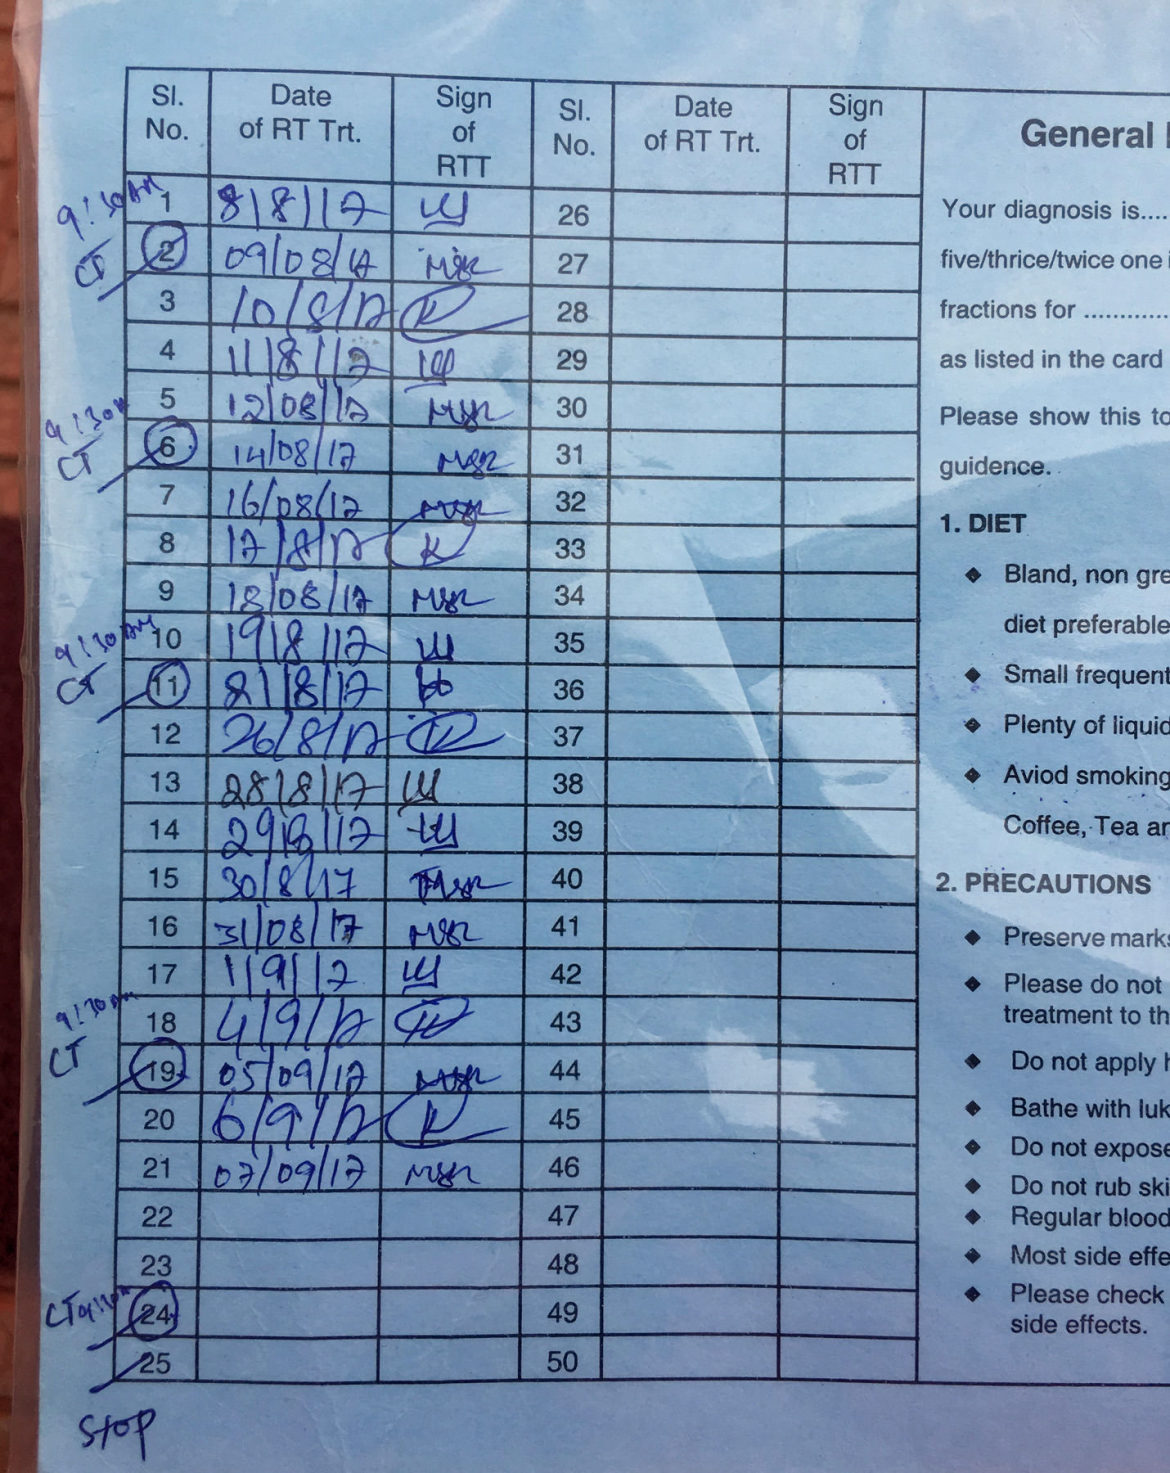 Sl. No. Date of RT Trt. Sign of RTT Sl. No. Date of RT Trt. Sign of RTT
9:30 AM 1 8/8/17 26
CT 2 09/08/17 27
3 10/8/17 28
4 11/8/17 29
5 12/08/17 30
9:30 CT 6 14/08/17 31
7 16/08/17 32
8 17/8/17 33
9 18/08/17 34
9:30 AM 10 19/8/17 35
CT 11 21/8/17 36
12 26/8/17 37
13 28/8/17 38
14 29/8/17 39
15 30/8/17 40
16 31/08/17 41
17 1/9/17 42
9:30 AM 18 4/9/17 43
CT 19 05/09/17 44
20 6/9/17 45
21 07/09/17 46
22 47
23 48
CT 24 49
25 50
Stop
General
Your diagnosis is....
five/thrice/twice one
fractions for ............
as listed in the card
Please show this to
guidence.
1. DIET
Bland, non gre
diet preferable
Small frequent
Plenty of liquid
Aviod smoking
Coffee, Tea an
2. PRECAUTIONS
Preserve marks
Please do not
treatment to th
Do not apply h
Bathe with luk
Do not expose
Do not rub ski
Regular blood
Most side effe
Please check
side effects.